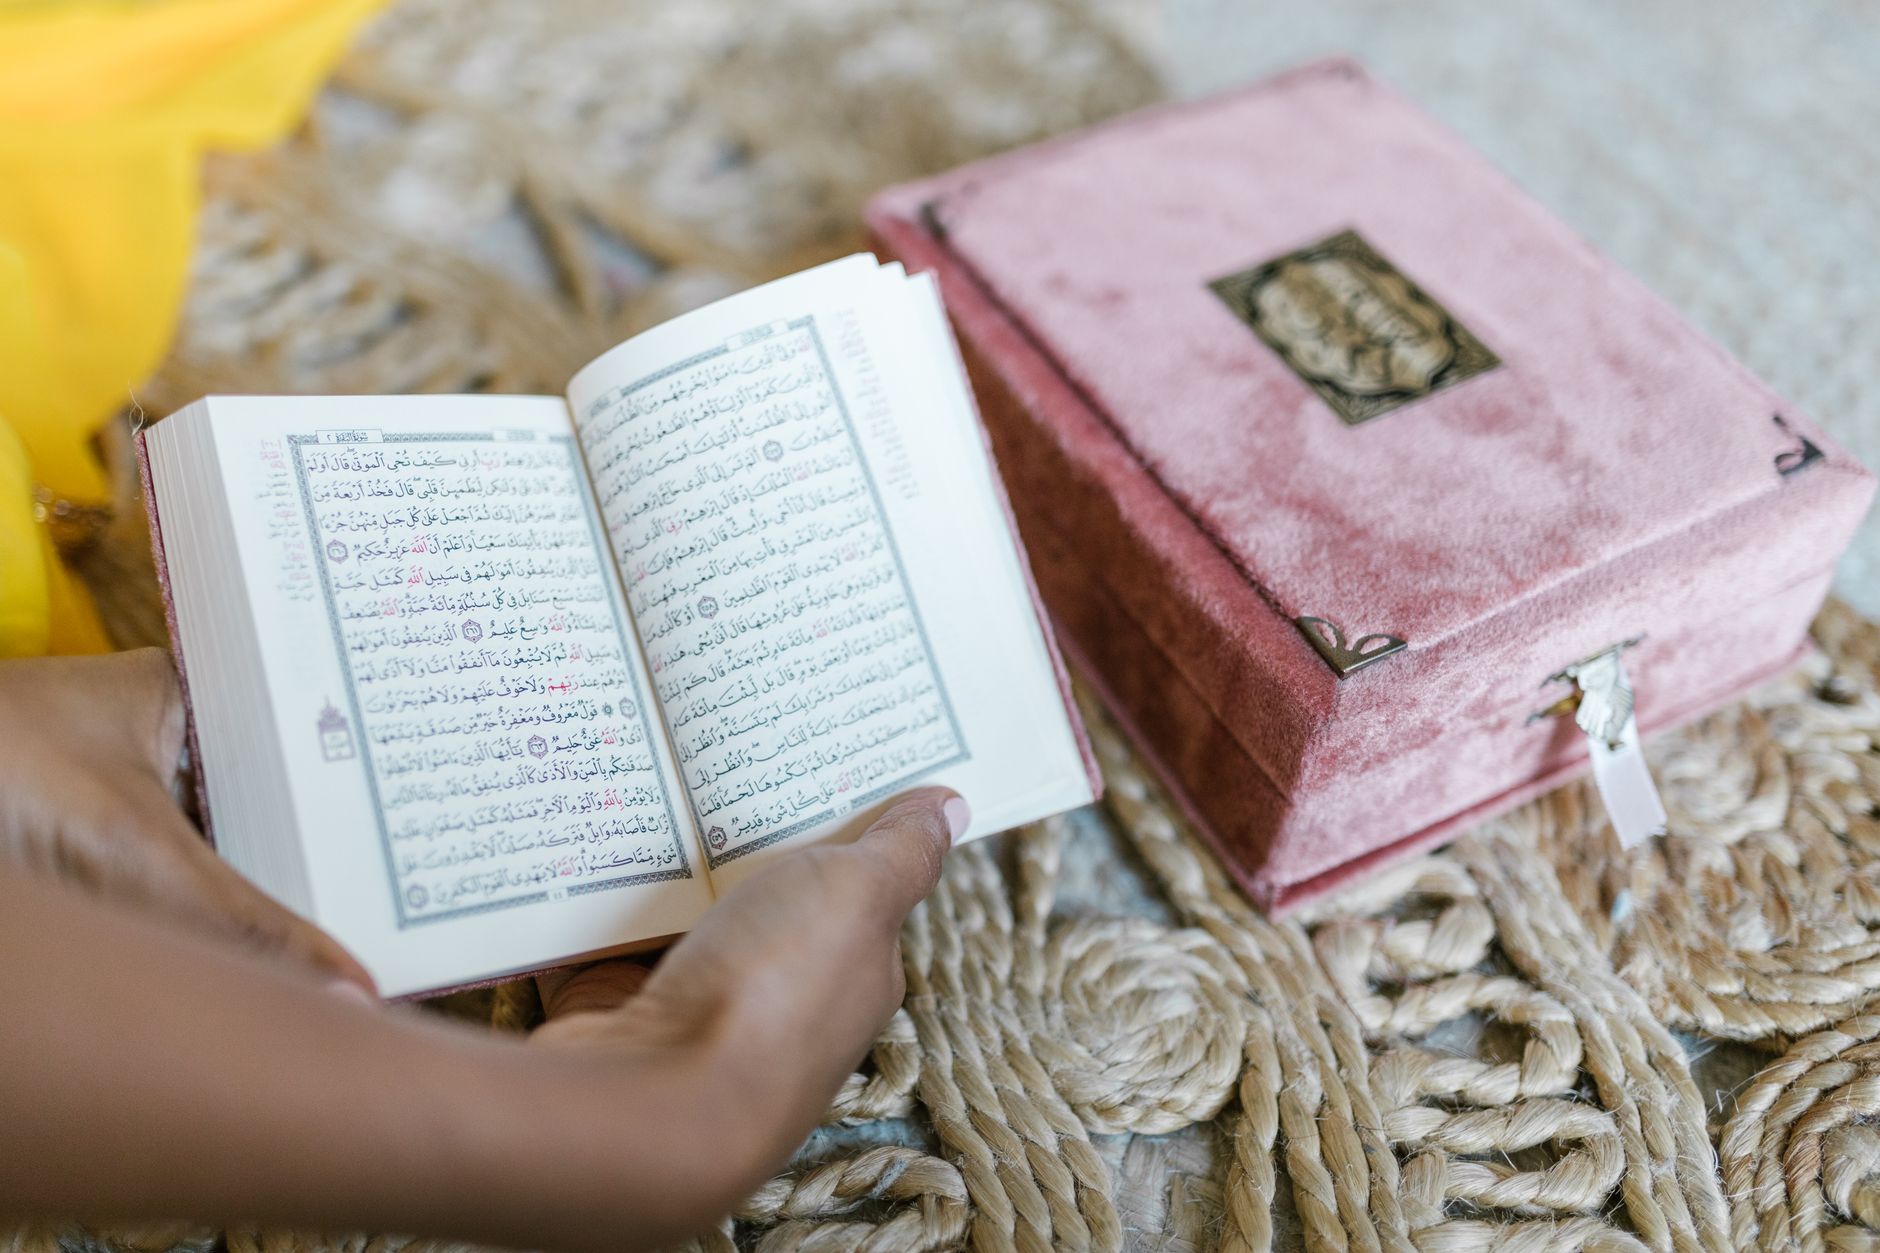 اللَّهُ وَلِيُّ الَّذِينَ ءَامَنُوا يُخْرِجُهُم مِّنَ الظُّلُمَٰتِ
وَالَّذِينَ كَفَرُوا أَوْلِيَاؤُهُمُ الطَّٰغُوتُ يُخْرِجُونَهُم
النُّورِ إِلَى الظُّلُمَٰتِ أُولَٰئِكَ أَصْحَٰبُ النَّارِ
خَٰلِدُونَ ٢٥٧ أَلَمْ تَرَ إِلَى الَّذِي حَاجَّ إِبْرَٰهِمَ
أَنْ ءَاتَىٰهُ اللَّهُ الْمُلْكَ إِذْ قَالَ إِبْرَٰهِمُ رَبِّيَ الَّذِي
وَيُمِيتُ قَالَ أَنَا أُحْيِي وَأُمِيتُ قَالَ إِبْرَٰهِمُ فَإِنَّ
بِالشَّمْسِ مِنَ الْمَشْرِقِ فَأْتِ بِهَا مِنَ الْمَغْرِبِ فَبُهِتَ
كَفَرَ وَاللَّهُ لَا يَهْدِي الْقَوْمَ الظَّٰلِمِينَ ٢٥٨ أَوْ كَالَّذِي
عَلَىٰ قَرْيَةٍ وَهِيَ خَاوِيَةٌ عَلَىٰ عُرُوشِهَا قَالَ أَنَّىٰ يُحْيِي هَٰذِهِ اللَّهُ
بَعْدَ مَوْتِهَا فَأَمَاتَهُ اللَّهُ مِائَةَ عَامٍ ثُمَّ بَعَثَهُ قَالَ كَمْ لَبِثْتَ
لَبِثْتُ يَوْمًا أَوْ بَعْضَ يَوْمٍ قَالَ بَل لَّبِثْتَ مِائَةَ عَامٍ
فَانظُرْ إِلَىٰ طَعَامِكَ وَشَرَابِكَ لَمْ يَتَسَنَّهْ وَانظُرْ إِلَىٰ
حِمَارِكَ وَلِنَجْعَلَكَ ءَايَةً لِّلنَّاسِ وَانظُرْ إِلَى
الْعِظَامِ كَيْفَ نُنشِزُهَا ثُمَّ نَكْسُوهَا لَحْمًا فَلَمَّا
تَبَيَّنَ لَهُ قَالَ أَعْلَمُ أَنَّ اللَّهَ عَلَىٰ كُلِّ شَيْءٍ قَدِيرٌ ٢٥٩
٤٣
سُورَةُ الْبَقَرَةِ ٢
وَإِذْ قَالَ إِبْرَٰهِمُ رَبِّ أَرِنِي كَيْفَ تُحْيِ الْمَوْتَىٰ قَالَ أَوَلَمْ
تُؤْمِن قَالَ بَلَىٰ وَلَٰكِن لِّيَطْمَئِنَّ قَلْبِي قَالَ فَخُذْ أَرْبَعَةً مِّنَ
الطَّيْرِ فَصُرْهُنَّ إِلَيْكَ ثُمَّ اجْعَلْ عَلَىٰ كُلِّ جَبَلٍ مِّنْهُنَّ جُزْءًا
ثُمَّ ادْعُهُنَّ يَأْتِينَكَ سَعْيًا وَاعْلَمْ أَنَّ اللَّهَ عَزِيزٌ حَكِيمٌ ٢٦٠
مَّثَلُ الَّذِينَ يُنفِقُونَ أَمْوَٰلَهُمْ فِي سَبِيلِ اللَّهِ كَمَثَلِ حَبَّةٍ
أَنبَتَتْ سَبْعَ سَنَابِلَ فِي كُلِّ سُنبُلَةٍ مِّائَةُ حَبَّةٍ وَاللَّهُ يُضَٰعِفُ
لِمَن يَشَاءُ وَاللَّهُ وَٰسِعٌ عَلِيمٌ ٢٦١ الَّذِينَ يُنفِقُونَ أَمْوَٰلَهُمْ
فِي سَبِيلِ اللَّهِ ثُمَّ لَا يُتْبِعُونَ مَا أَنفَقُوا مَنًّا وَلَا أَذًى لَّهُمْ
أَجْرُهُمْ عِندَ رَبِّهِمْ وَلَا خَوْفٌ عَلَيْهِمْ وَلَا هُمْ يَحْزَنُونَ
٢٦٢ ۞ قَوْلٌ مَّعْرُوفٌ وَمَغْفِرَةٌ خَيْرٌ مِّن صَدَقَةٍ يَتْبَعُهَا
أَذًى وَاللَّهُ غَنِيٌّ حَلِيمٌ ٢٦٣ يَٰأَيُّهَا الَّذِينَ ءَامَنُوا لَا تُبْطِلُوا
صَدَقَٰتِكُم بِالْمَنِّ وَالْأَذَىٰ كَالَّذِي يُنفِقُ مَالَهُ رِئَاءَ النَّاسِ
وَلَا يُؤْمِنُ بِاللَّهِ وَالْيَوْمِ الْءَاخِرِ فَمَثَلُهُ كَمَثَلِ صَفْوَانٍ عَلَيْهِ
تُرَابٌ فَأَصَابَهُ وَابِلٌ فَتَرَكَهُ صَلْدًا لَّا يَقْدِرُونَ عَلَىٰ
شَيْءٍ مِّمَّا كَسَبُوا وَاللَّهُ لَا يَهْدِي الْقَوْمَ الْكَٰفِرِينَ
٤٤